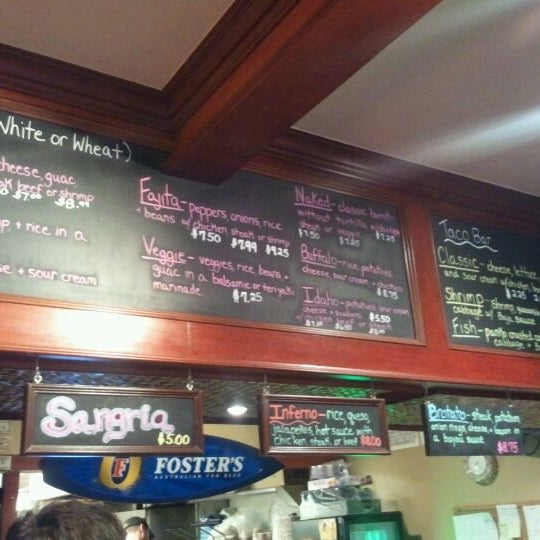 White or Wheat)
cheese, guac
beef or shrimp
$7.00 $8.99
+ rice in a
+ sour cream
Fajita - peppers, onions, rice
+ beans w/ chicken steak or shrimp
$7.50 $7.99 $9.25
Veggie - veggies, rice, beans +
guac in a balsamic or teriyaki
marinade
$7.25
Naked - classic burrito
without tortilla w/ chicken
steak or veggie
$7.50 $7.25 $7.25
Buffalo - rice, potatoes,
cheese sour cream + chicken
$8.75
Idaho - potatoes, sour cream
cheese + scallions $5.50
w/ chicken beef or steak
Taco Bar
Classic - cheese, lettuce
and sour cream w/ chicken,
Shrimp - shrimp,
cabbage w/ Baja Sauce
Fish -
cabbage w/
Sangria
$5.00
Inferno - rice, queso,
jalapeños, hot sauce with
chicken steak or beef $8.00
steak, potatoes,
onion rings, cheese + bacon in
a sauce $8.75
F
FOSTER'S
AUSTRALIAN FOR BEER